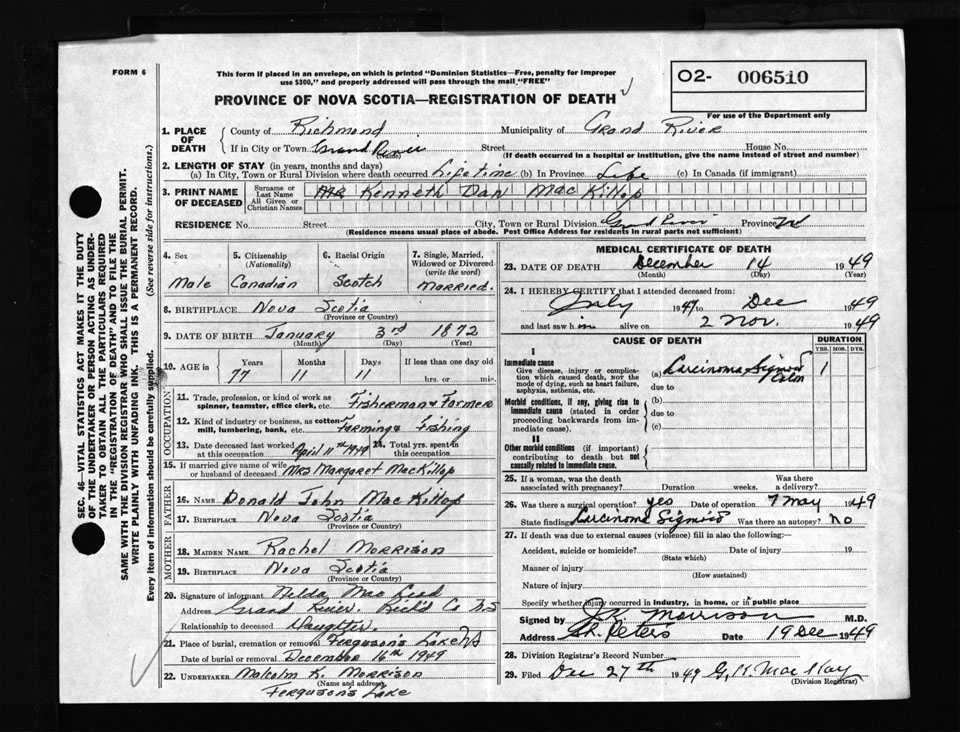 FORM 6
This form if placed in an envelope, on which is printed "Dominion Statistics—Free, penalty for improper
use $300," and properly addressed will pass through the mail "FREE"
O2- 006510
For use of the Department only
PROVINCE OF NOVA SCOTIA—REGISTRATION OF DEATH
SEC. 46—VITAL STATISTICS ACT MAKES IT THE DUTY
OF THE UNDERTAKER OR PERSON ACTING AS UNDER-
TAKER TO OBTAIN ALL THE PARTICULARS REQUIRED
IN THE "REGISTRATION OF DEATH" AND TO FILE THE
SAME WITH THE DIVISION REGISTRAR WHO SHALL ISSUE THE BURIAL PERMIT.
WRITE PLAINLY WITH UNFADING INK. THIS IS A PERMANENT RECORD.
Every item of information should be carefully supplied. (See reverse side for instructions.)
1. PLACE OF DEATH County of Richmond Municipality of Grand River
If in City or Town Grand River Street House No.
(If death occurred in a hospital or institution, give the name instead of street and number)
2. LENGTH OF STAY (in years, months and days)
(a) In City, Town or Rural Division where death occurred Lifetime (b) In Province Life (c) In Canada (if immigrant)
3. PRINT NAME OF DECEASED Surname or Last Name All Given or Christian Names Kenneth Dan MacKillop
RESIDENCE No. Street City, Town or Rural Division Grand River Province
(Residence means usual place of abode. Post Office Address for residents in rural parts not sufficient)
4. Sex 5. Citizenship (Nationality) 6. Racial Origin 7. Single, Married, Widowed or Divorced (write the word)
Male Canadian Scotch Married.
8. BIRTHPLACE Nova Scotia
(Province or Country)
9. DATE OF BIRTH January 3rd 1872
(Month) (Day) (Year)
10. AGE IN Years Months Days If less than one day old
77 11 11 hrs. or min.
OCCUPATION
11. Trade, profession, or kind of work as spinner, teamster, office clerk, etc. Fisherman & Farmer
12. Kind of industry or business, as cotton-mill, lumbering, bank, etc. Farming & Fishing
13. Date deceased last worked at this occupation April 11th 1949 14. Total yrs. spent in this occupation
15. If married give name of wife or husband of deceased Mrs Margaret MacKillop
FATHER
16. NAME Donald John MacKillop
17. BIRTHPLACE Nova Scotia
(Province or Country)
MOTHER
18. MAIDEN NAME Rachel Morrison
19. BIRTHPLACE Nova Scotia
(Province or Country)
20. Signature of informant Hilda MacLeod
Address Grand River. Rich'd Co N.S
Relationship to deceased Daughter
21. Place of burial, cremation or removal Ferguson's Lake N S
Date of burial or removal December 16th 1949
22. UNDERTAKER Malcolm K. Morrison
(Name and address)
Fergusons Lake
MEDICAL CERTIFICATE OF DEATH
23. DATE OF DEATH December 14 1949
(Month) (Day) (Year)
24. I HEREBY CERTIFY that I attended deceased from:
July 1947 to Dec 1949
and last saw him alive on 2 Nov. 1949
CAUSE OF DEATH DURATION
YRS. MOS. DYS.
I
Immediate cause
Give disease, injury or complication which caused death, NOT the mode of dying, such as heart failure, asphyxia, asthenia, etc.
(a) Carcinoma Sigmoid Colon 1
due to
Morbid conditions, if any, giving rise to immediate cause (stated in order proceeding backwards from immediate).
(b)
due to
(c)
II
Other morbid conditions (if important) contributing to death but not causally related to immediate cause.
25. If a woman, was the death associated with pregnancy? Duration weeks. Was there a delivery?
26. Was there a surgical operation? yes Date of operation 7 May 1949
State findings Carcinoma Sigmoid Was there an autopsy? No
27. If death was due to external causes (violence) fill in also the following:—
Accident, suicide or homicide? Date of injury 19
(State which)
Manner of injury
(How sustained)
Nature of injury
Specify whether injury occurred in industry, in home, or in public place
Signed by Morrison M.D.
Address St. Peters Date 19 Dec 1949
28. Division Registrar's Record Number
29. Filed Dec 27th 1949 G. H. MacKay
(Division Registrar)